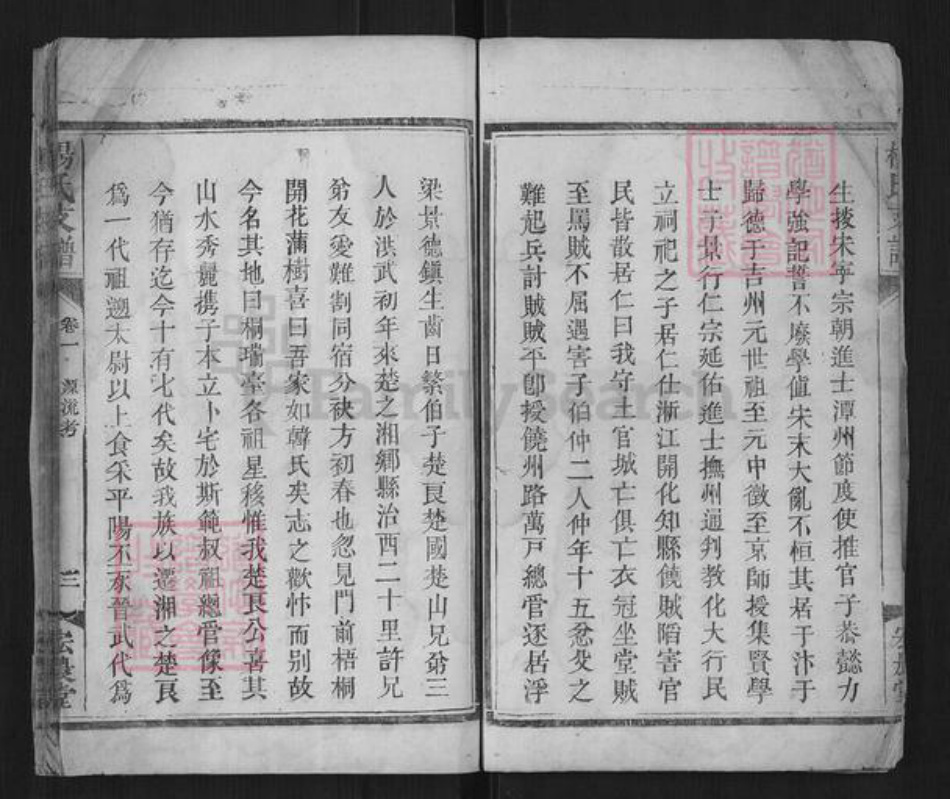 生掞宋寧宗朝進士潭州節度使推官子恭懿力
學強記誓不廢學值宋末大亂不桓其居于汴于
歸德于吉州元世祖至元中徵至京師授集賢學
士子景行仁宗延佑進士撫州通判教化大行民
立祠祀之子居仁仕浙江開化知縣饒賊陷害官
民皆散居仁曰我守土官城亡俱亡衣冠坐堂賊
至罵賊不屈遇害子伯仲二人仲年十五忿父之
難起兵討賊賊平卽授饒州路萬戸總管逐居浮
梁景德鎭生齒日繁伯子楚良楚國楚山兄弟三
人於洪武初年來楚之湘鄉縣治西二十里許兄
弟友愛難割同宿分袂方初春也忽見門前梧桐
開花蒲樹喜曰吾家如韓氏矣志之歡忭而别故
今名其地曰桐瑞臺各祖星移惟我楚良公喜其
山水秀麗携子本立卜宅於斯範叔祖總管像至
今猶存迄今十有七代矣故我族以遷湘之楚良
爲一代祖遡太尉以上食采平陽至東晉武代爲
楊氏支譜
卷一
源流考
三
FamilySearch